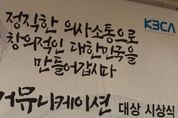 정직한 의사소통으로
창의적인 대한민국을
만들어갑시다
KBCA
커뮤니케이션 대상 시상식